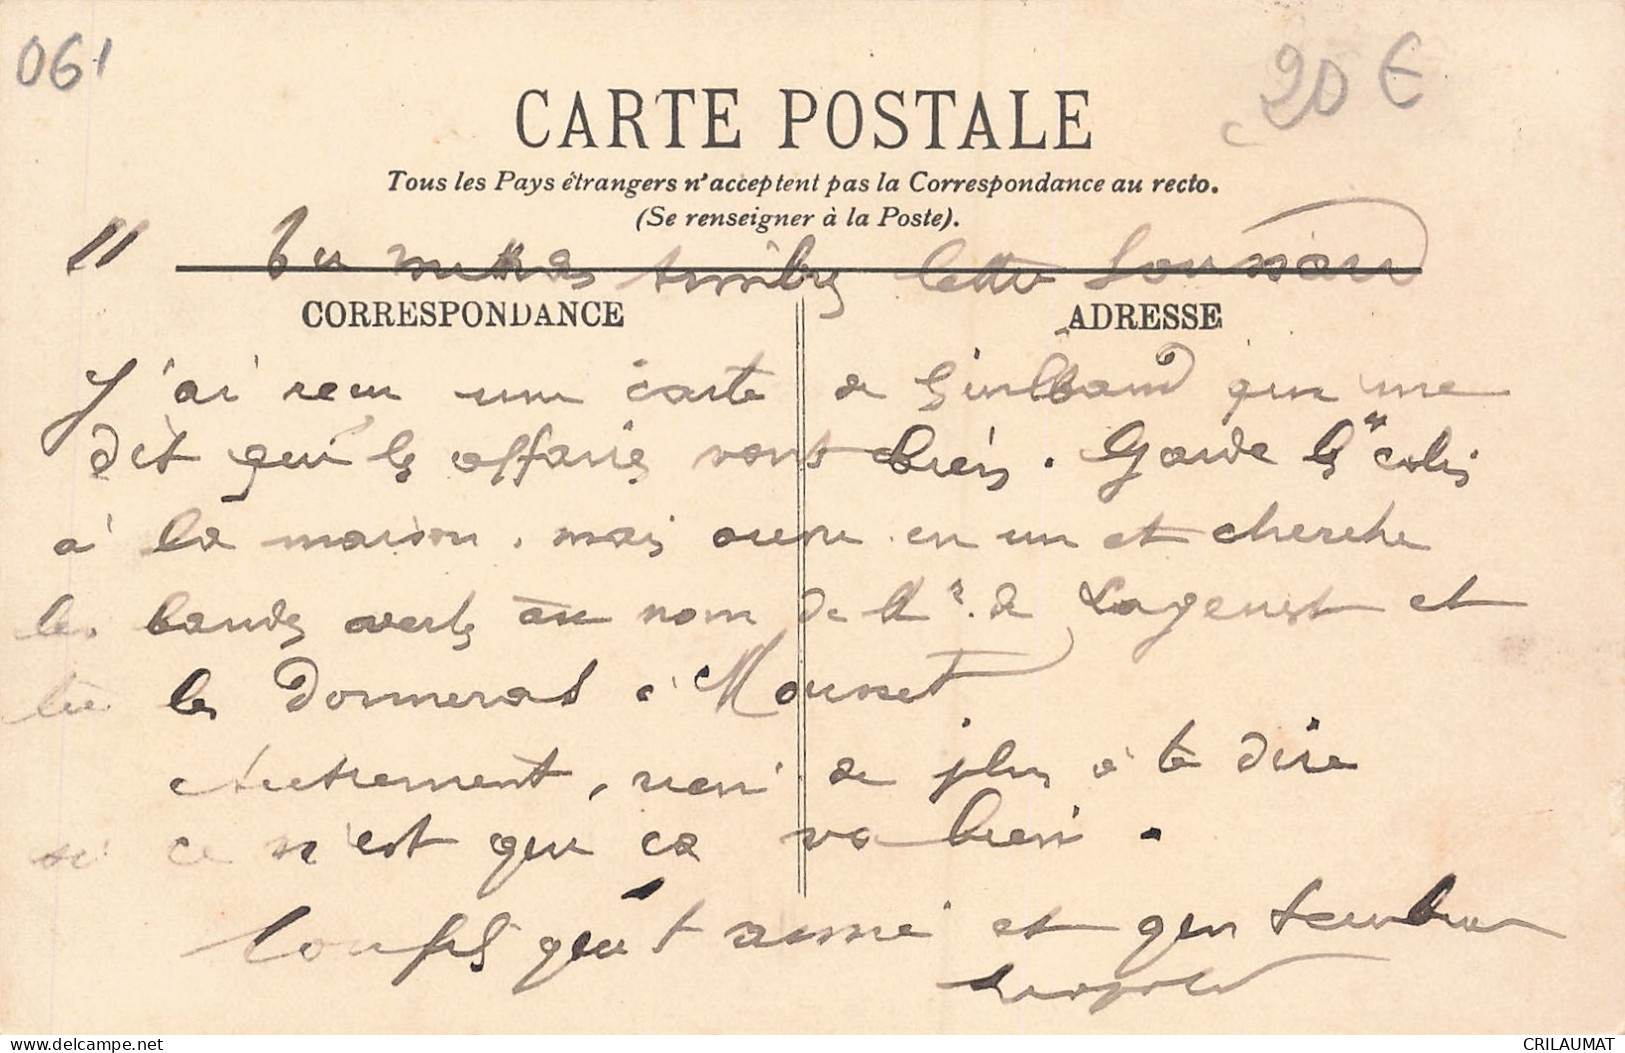 061
20 €
CARTE POSTALE
Tous les Pays étrangers n'acceptent pas la Correspondance au recto.
(Se renseigner à la Poste).
" Tu mettras timbres lettre
CORRESPONDANCE
ADRESSE
J'ai reçu une carte de qui me
dit que les affaires vont bien. Garde les "colis
à la maison, mais ouvre en un et cherche
les bandes vertes au nom de Mr. de Lagenest et
tu les donneras à Mousset
Autrement, rien de plus à te dire
si ce n'est que ça va bien.
Ton fils qui t'aime et qui t'embrasse
Leopold
delcampe.net
CRILAUMAT